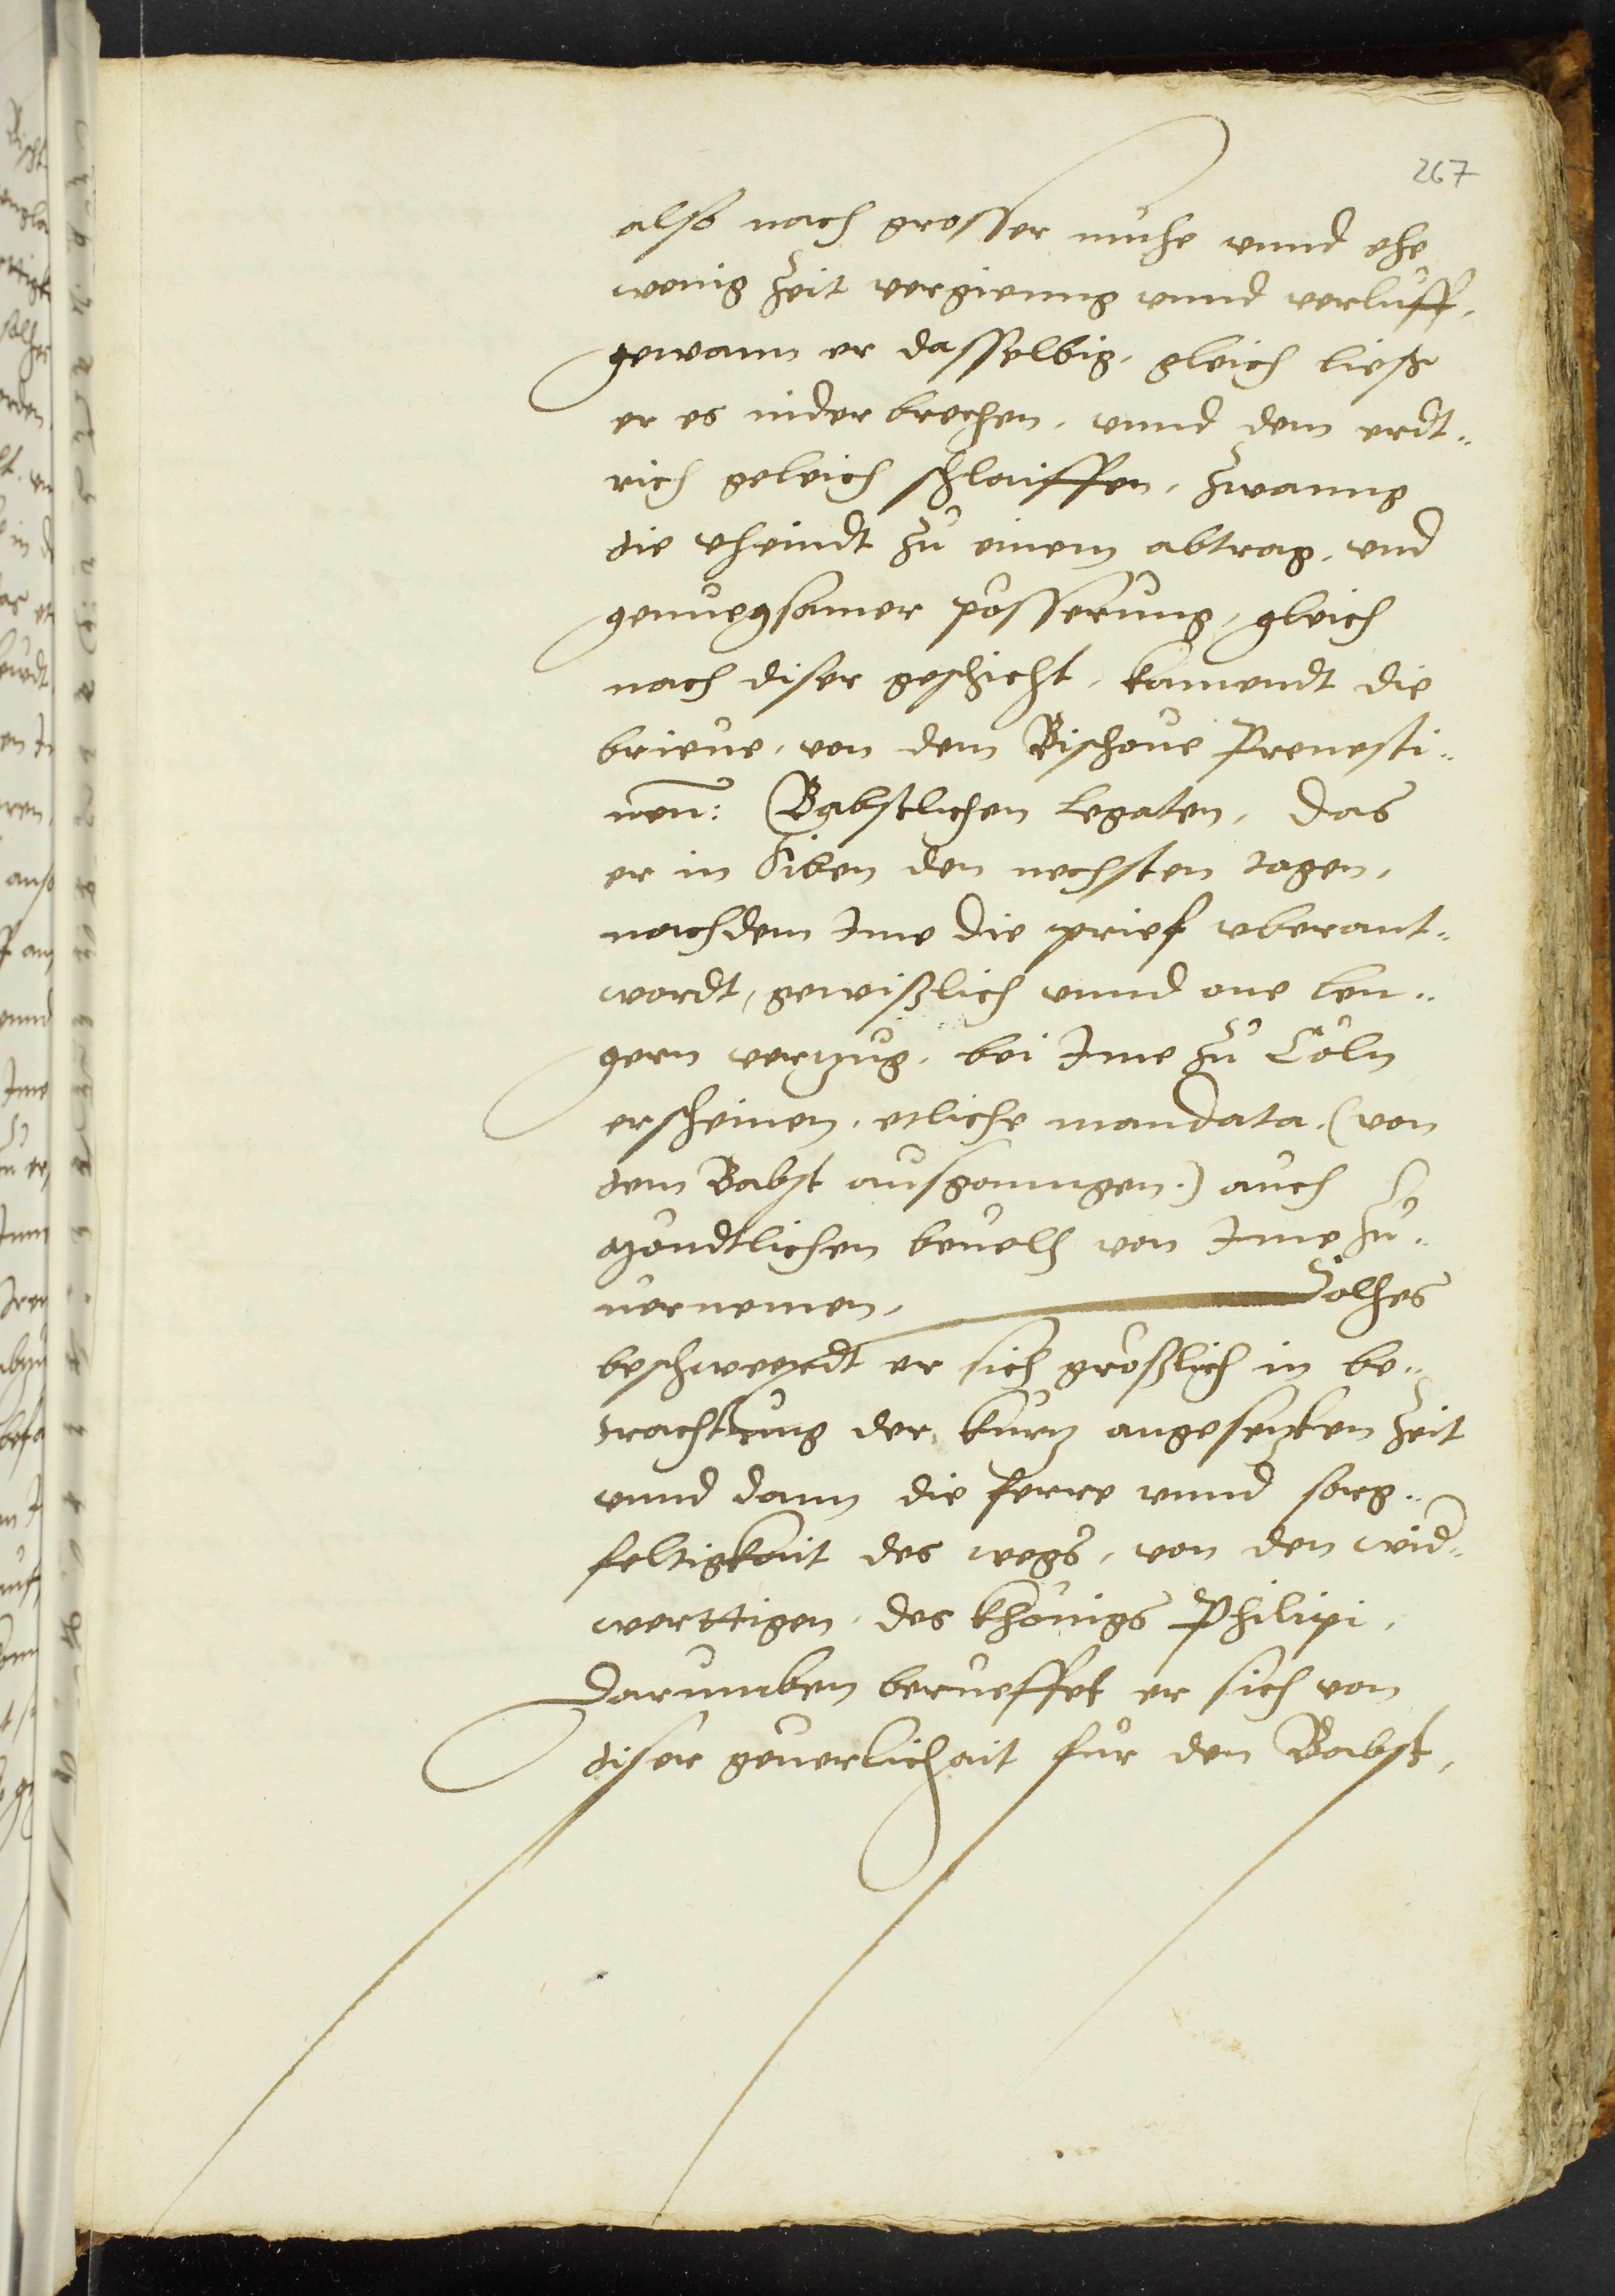 267
also nach grosser muhe vnnd ehe
wenig Zeit vergienng vnnd verluff,
gewann er dasselbig, gleich ließ
er es nider brechen, vnnd dem erdt¬
rich geleich schlaiffen, Zwanng
die vheindt Zu einem abtrag, vnd
genuegsamer posserung, gleich
nach diser geschicht, kamendt die
brieue, von dem Bischoue Prenesti¬
nen: Babstlichen Legaten, Das
er in Siben den nechsten tagen,
nachdem Ime die prief vberant¬
wordt, gewißlich vnnd one len¬
gern verzug, bei Ime Zu Cöln
erscheinen, etliche mandata, (von
dem Babst ausganngen.) auch
mondtlichen beuelh von Ime Zu¬
uernemen, Solhes
beschweerdt er sich größlich in be¬
trachttung der kurtz angesetzten Zeit
vnnd dann die ferre vnnd sorg¬
feltigkait des wegs, von den wid¬
werttigen, des khönigs Philipi,
Darumben beruefft er sich von
diser geuerlichait für den Babst,